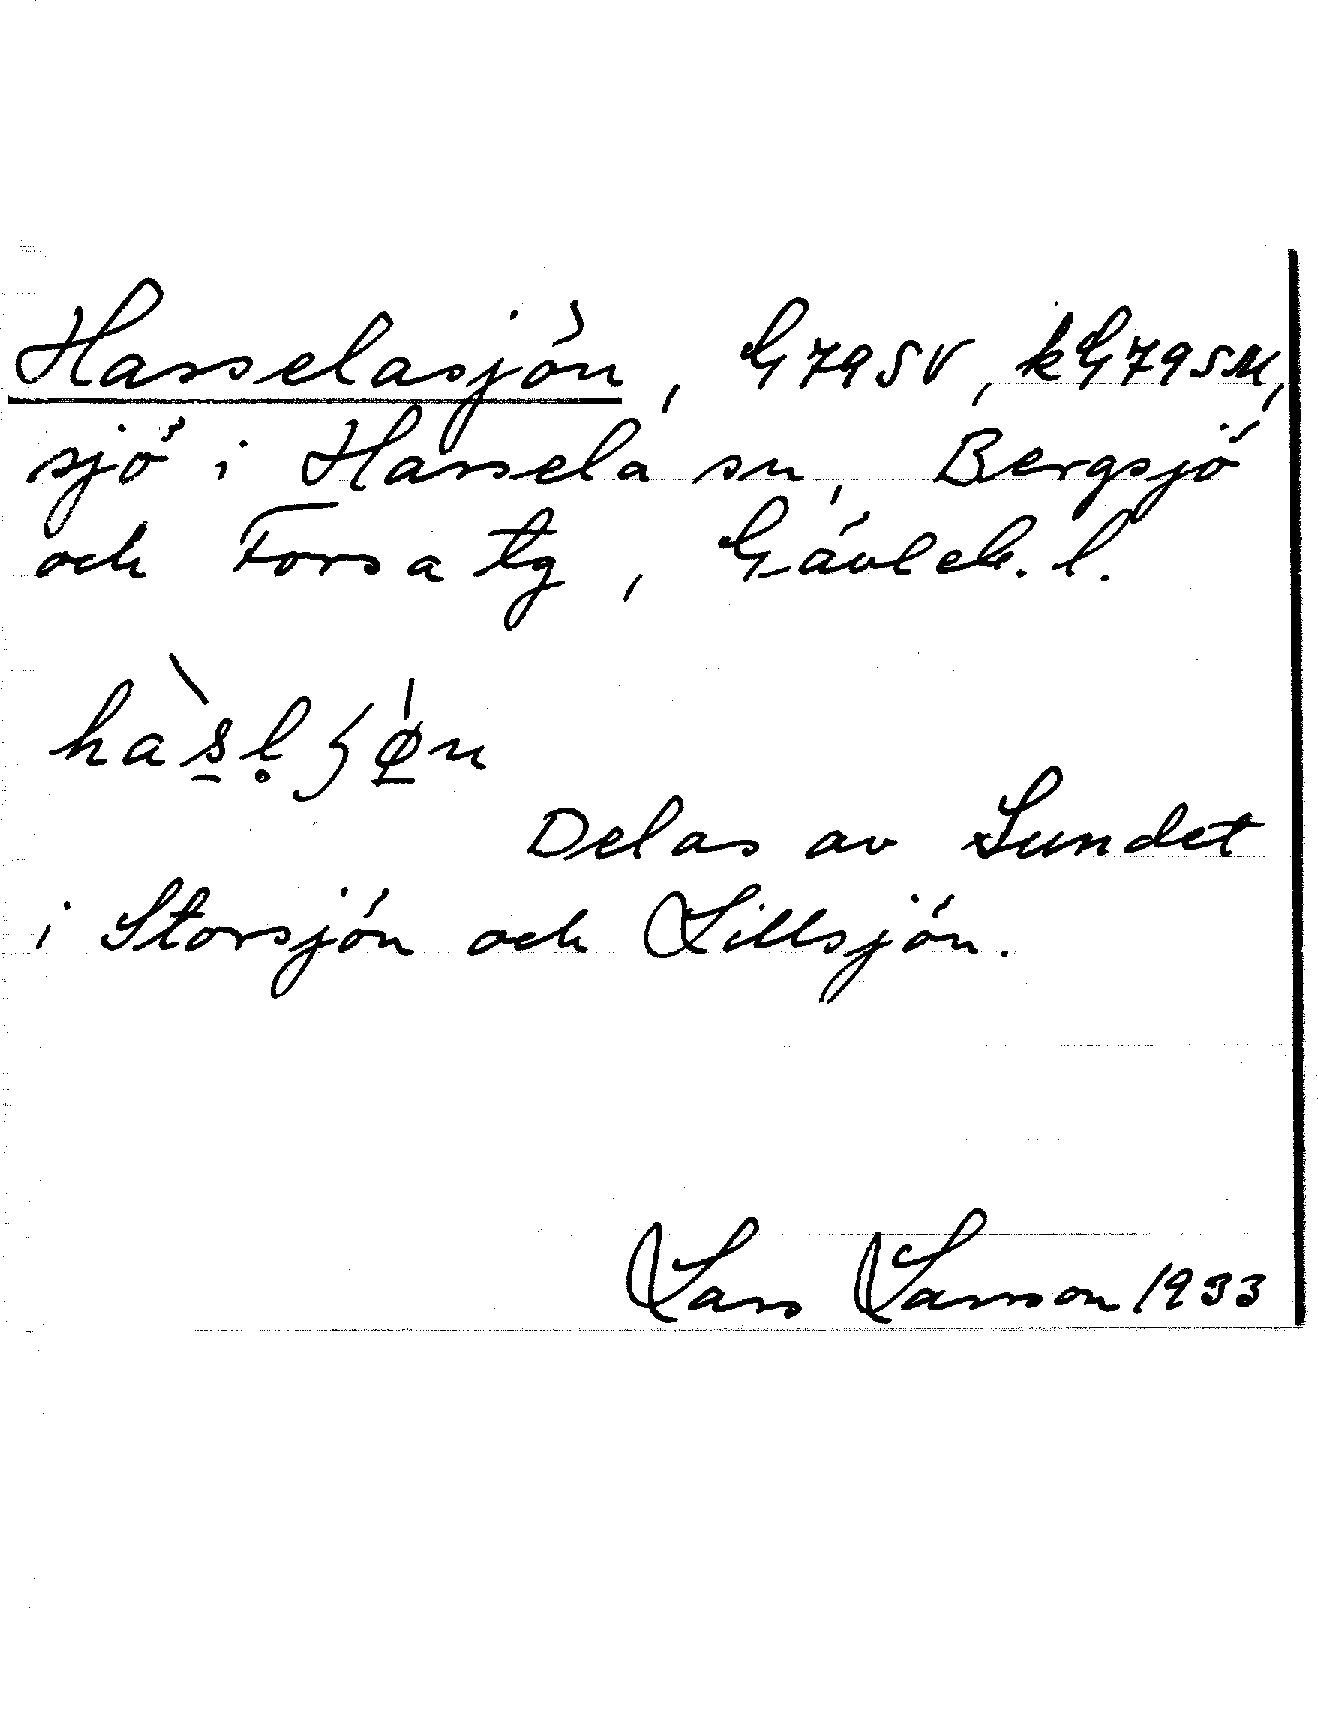 Hasselasjön, G79SV, kG79SM,
sjö i Hassela sn, Bergsjö
och Forsa tg, Gävleb. l.
Delas av Sundet
i Storsjön och Lillsjön.
Lars Larsson 1933